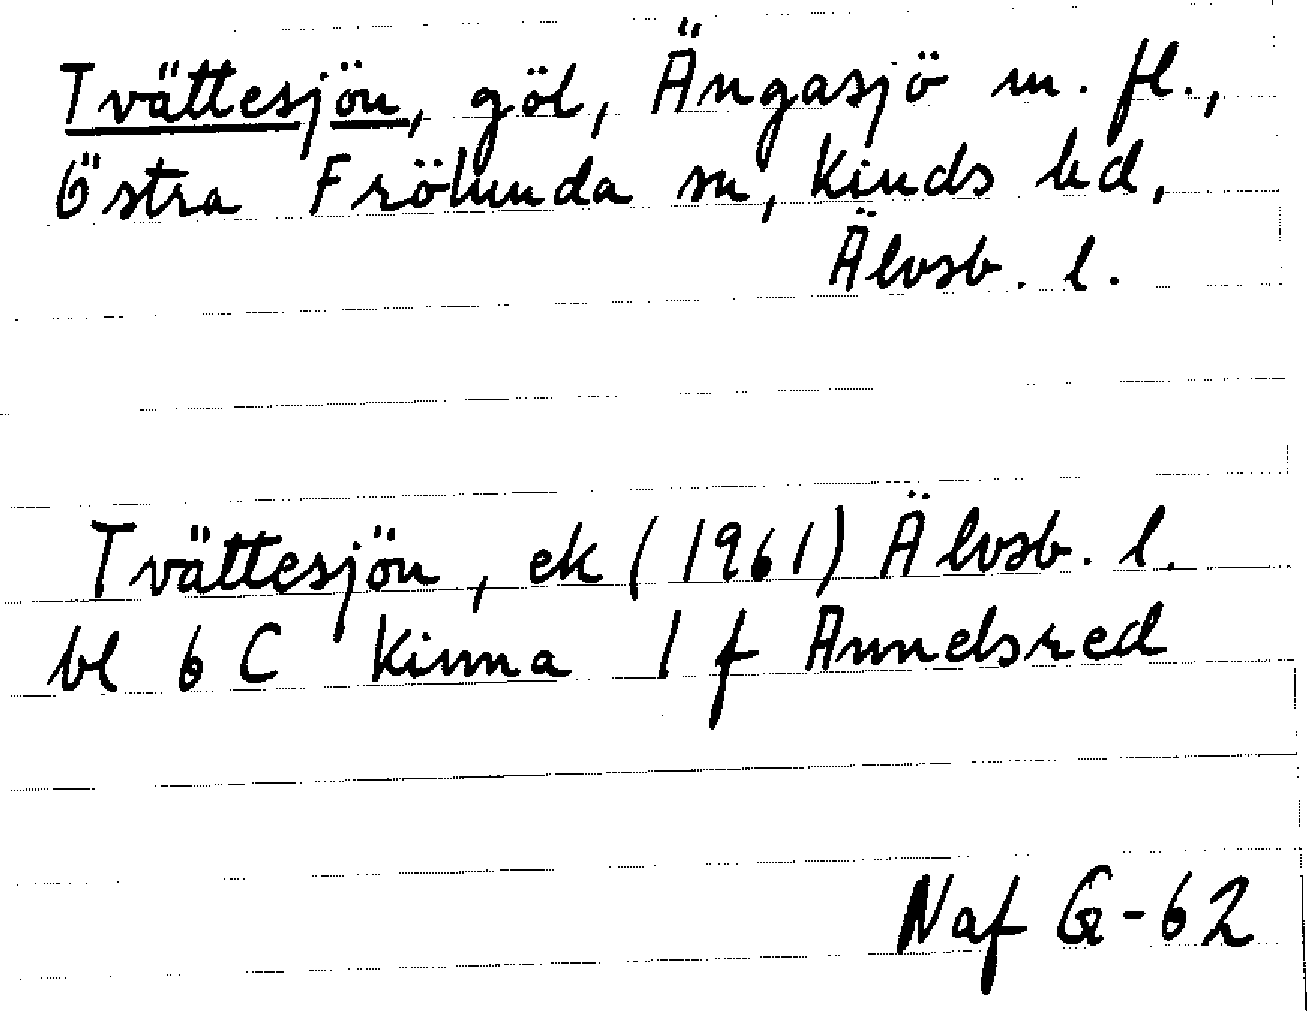 Tvättesjön, göl, Ängasjö m. fl.,
Östra Frölunda sn, Kinds hd,
Älvsb. l.
Tvättesjön, ek (1961) Älvsb. l.
bl 6 C Kinna 1 f Annelsred
Naf G-62